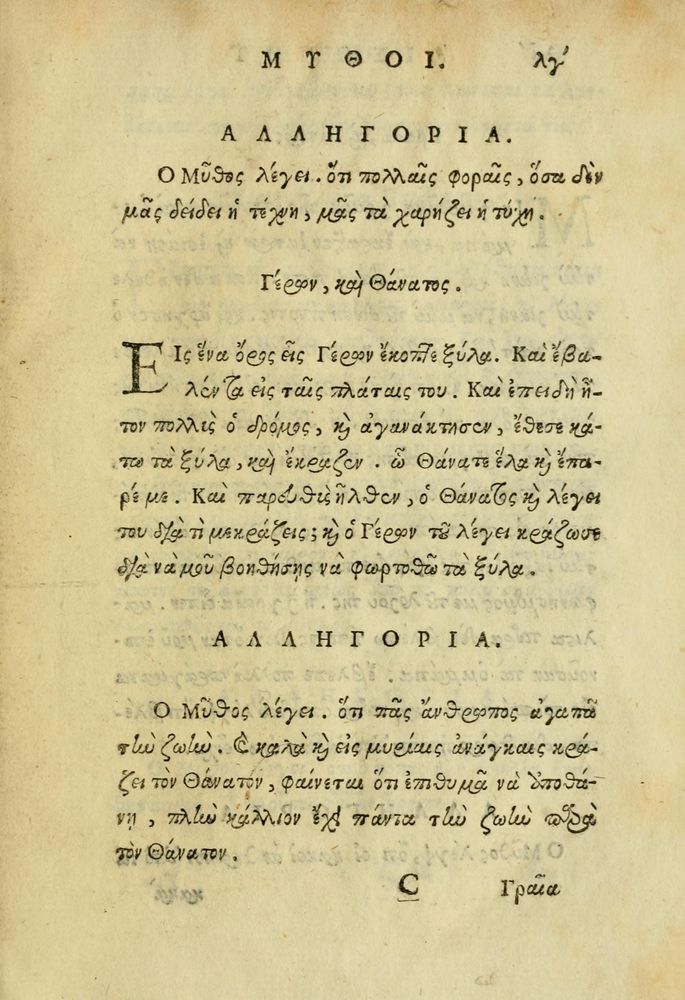 ΜΥΘΟΙ. λγʹ
ΑΛΛΗΓΟΡΙΑ.
Ο Μῦθος λέγει. ὅτι πολλαῖς φοραῖς, ὅσα δὲν
μᾶς δείδει ἡ τέχνη, μᾶς τὰ χαρήζει ἡ τύχη.
Γέρων, καὶ Θάνατος.
ΕΙς ἕνα ὄρος εἷς Γέρων ἔκοπτε ξύλα. Καὶ ἔβα-
λέν τα εἰς ταῖς πλάταις του. Καὶ ἐπειδὴ ἦ-
τον πολλὶς ὁ δρόμος, καὶ ἀγανάκτησεν, ἔθεσε κά-
τω τὰ ξύλα, καὶ ἔκραζεν. ὦ Θάνατε ἔλα καὶ ἔπα-
ρέ με. Καὶ παρευθὶς ἦλθεν, ὁ Θάνατος καὶ λέγει
του διὰ τὶ μεκράζεις; καὶ ὁ Γέρων τοῦ λέγει κράζωσε
διὰ νὰ μοῦ βοηθήσης νὰ φωρτοθῶ τὰ ξύλα.
ΑΛΛΗΓΟΡΙΑ.
Ο Μῦθος λέγει. ὅτι πᾶς ἄνθρωπος ἀγαπᾶ
τὴν ζωὴν. καὶ καλὰ καὶ εἰς μυρίαις ἀνάγκαις κρά-
ζει τὸν Θάνατόν, φαίνεται ὅτι ἐπιθυμᾶ νὰ ὑποθά-
νῃ, πλὴν κάλλιον ἔχει πάντα τὴν ζωὴν παρὰ
τὸν Θάνατον.
C Γραῖα